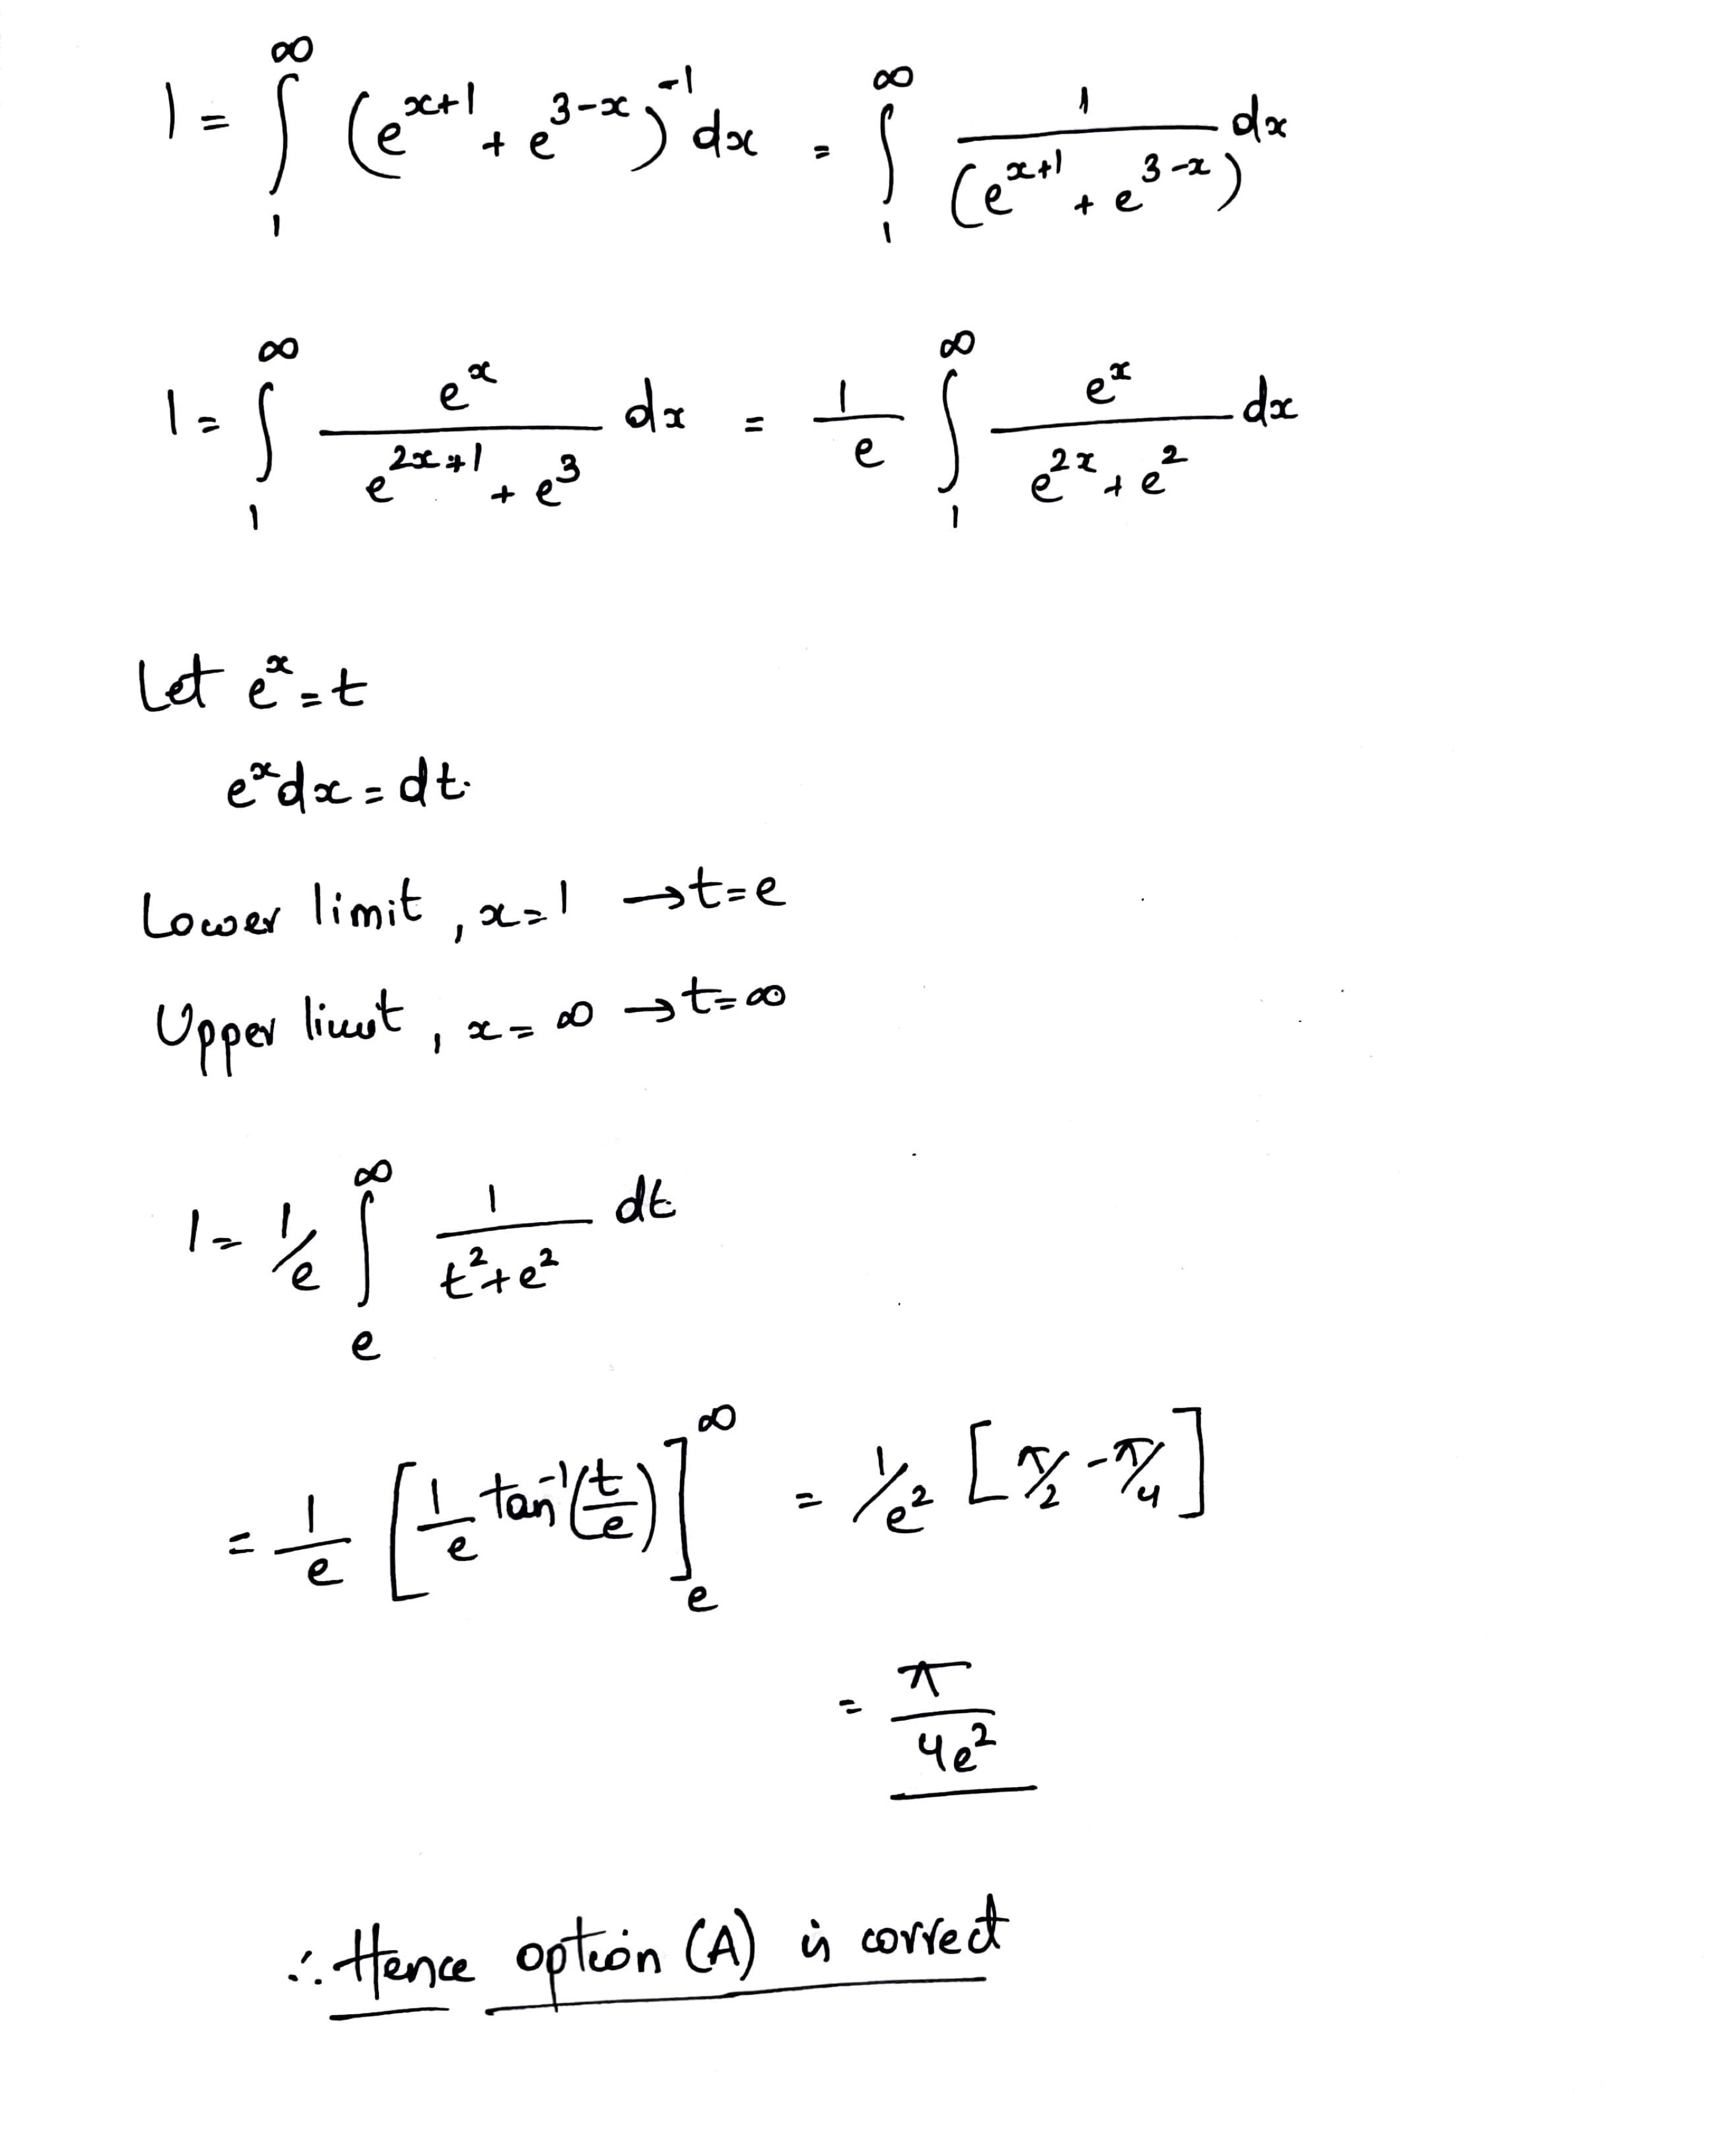 I = ∫₁^∞ (e^{x+1} + e^{3-x})^{-1} dx = ∫₁^∞ 1/(e^{x+1} + e^{3-x}) dx
I = ∫₁^∞ e^x/(e^{2x+1} + e^3) dx = 1/e ∫₁^∞ e^x/(e^{2x} + e^2) dx
Let e^x = t
e^x dx = dt.
Lower limit, x=1 → t=e
Upper limit, x=∞ → t=∞
I = 1/e ∫_e^∞ 1/(t²+e²) dt
= 1/e [1/e tan⁻¹(t/e)]_e^∞ = 1/e² [π/2 - π/4]
= π/4e²
∴ Hence option (A) is correct